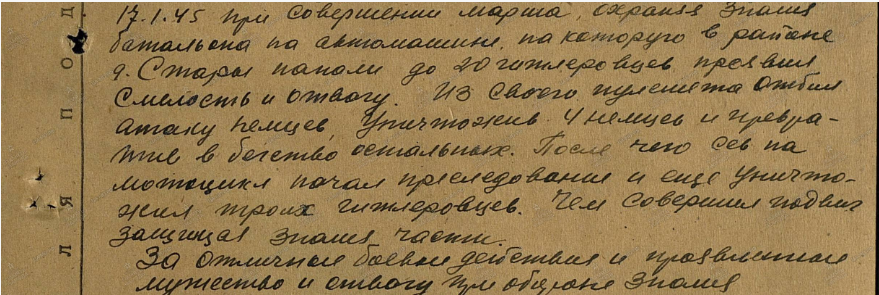 17.1.45 при совершении марша, охраняя Знамя
батальона на автомашине, на которую в районе
д. Стары напали до 20 гитлеровцев проявил
смелость и отвагу. Из своего пулемета отбил
атаку немцев, уничтожив 4 немцев и превра-
тив в бегство остальных. После чего сев на
мотоцикл начал преследование и еще уничто-
жил троих гитлеровцев. Чем совершил подвиг
защищая знамя части.
За отличные боевые действия и проявленные
мужество и отвагу при обороне Знамя
Д
О
П
Я
Л